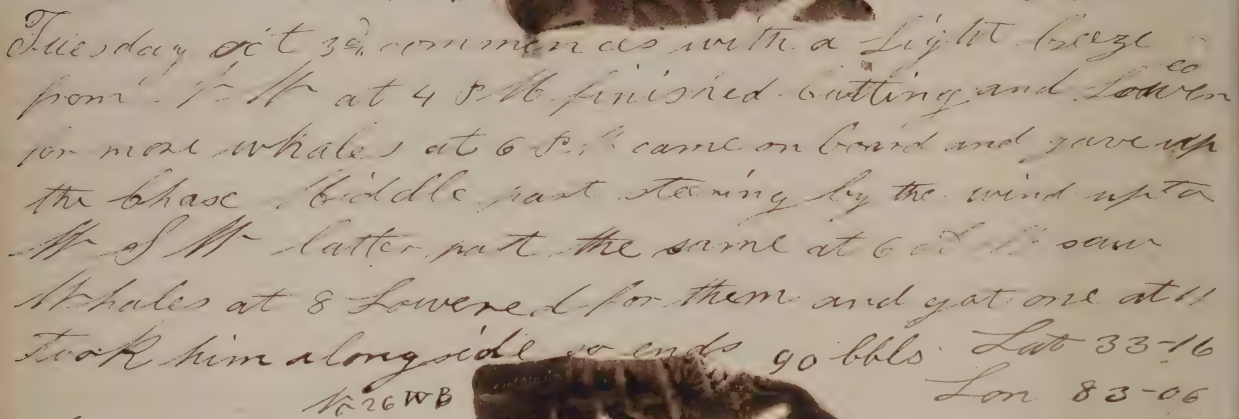 Tuesday oct 3d commences with a Light breeze
from N W at 4 P M finished Cutting and Lowered
for more whales at 6 P.M came on board and gave up
the Chase Middle part steering by the wind up to
W S W latter part the same at 6 A M saw
Whales at 8 Lowered for them and got one at 11
took him alongside so ends 90 bbls. Lat 33-16
No 26 WB Lon 83-06